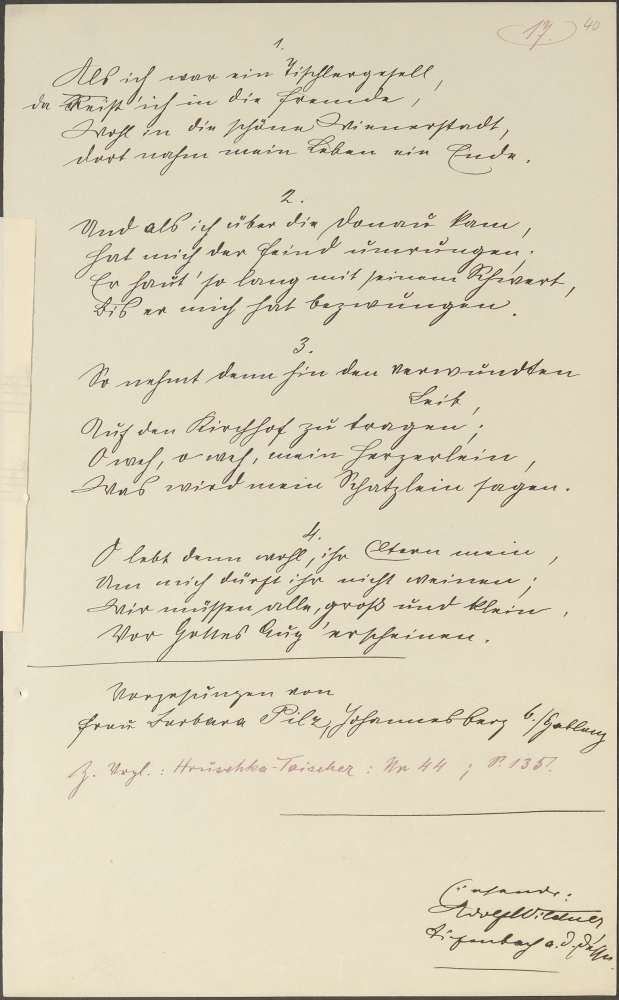 17. 40
1.
Als ich war ein Tischlergesell,
da Reist' ich in die Fremde,
Wohl in die schöne Wienerstadt,
dort nahm mein Leben ein Ende.
2.
Und als ich über die Donau kam,
hat mich der Feind umrungen;
Er haut' so lang mit seinem Schwert,
Bis er mich hat bezwungen.
3.
So nehmt denn hin den verwundten
Leib,
Auf den Kirchhof zu tragen;
O weh, o weh, mein Herzerlein,
Was wird mein Schatzlein sagen.
4.
O lebt denn wohl, ihr Eltern mein,
Um mich dürft ihr nicht weinen;
Wir müssen alle, groß und klein,
Vor Gottes Aug' erscheinen.
Vorgesungen von
Frau Barbara Pilz, Johannesberg b./Gablonz
Z. Vergl.: Hruschka-Toischer: Nr 44; S. 135.
Einsender:
Adolf Wildner
Tiefenbach a. d. Desse.